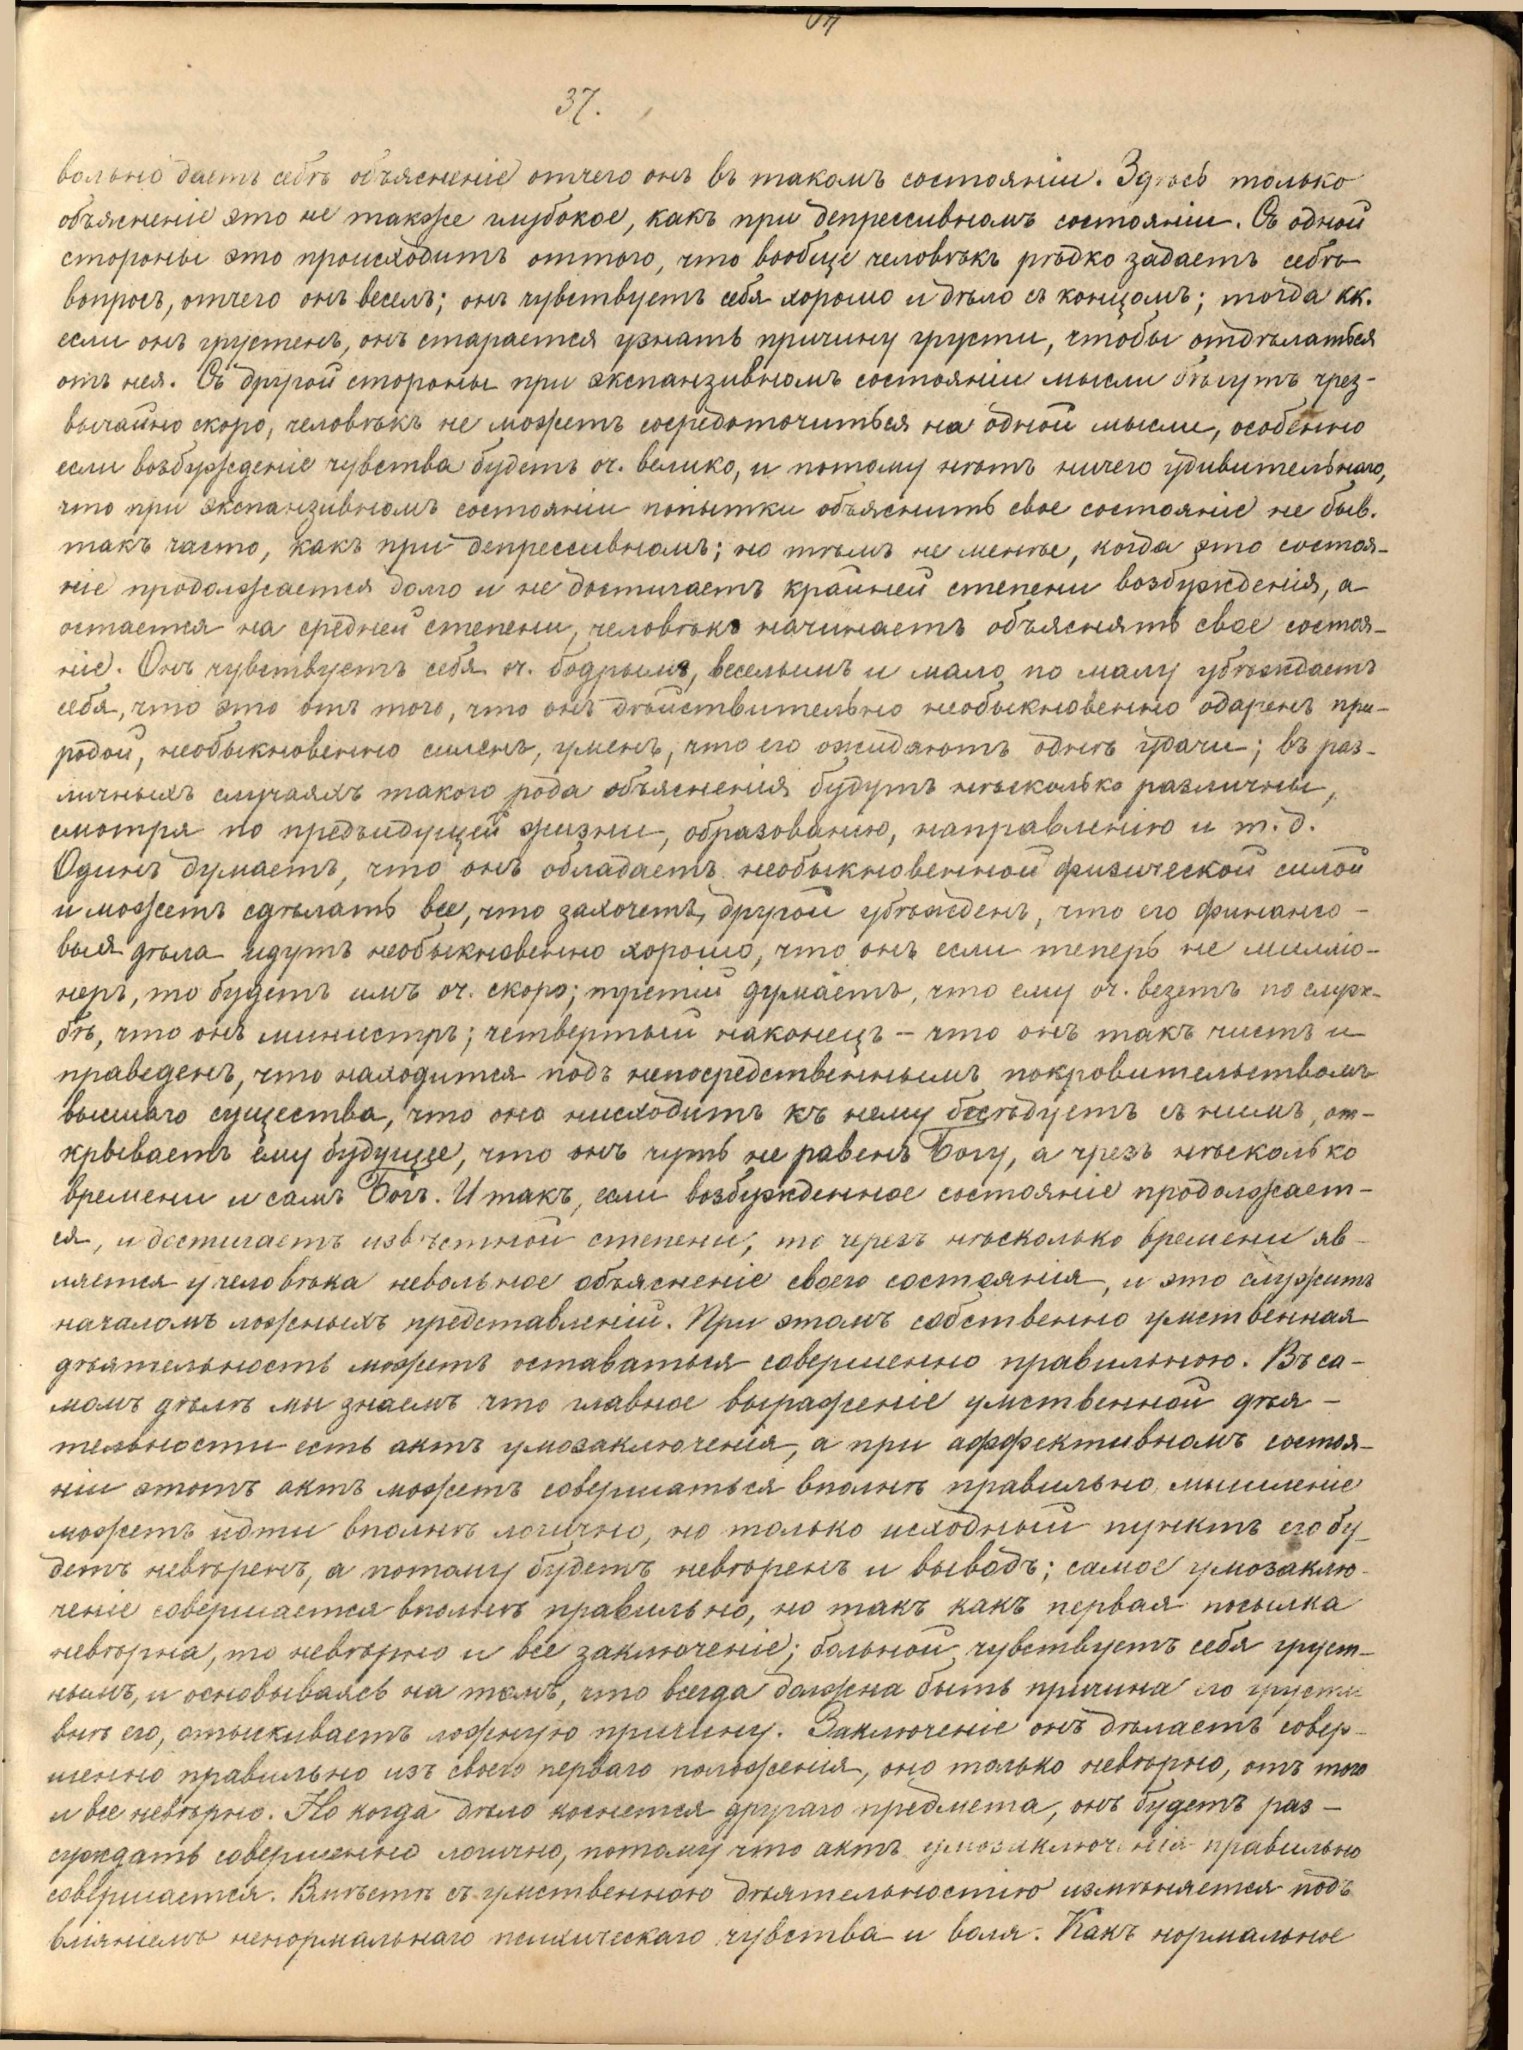 37.
вольно даетъ себѣ объясненіе отчего онъ въ такомъ состояніи. Здѣсь только
объясненіе это не также глубокое, какъ при депрессивномъ состояніи. Съ одной
стороны это происходитъ оттого, что вообще человѣкъ рѣдко задаетъ себѣ
вопросъ, отчего онъ веселъ; онъ чувствуетъ себя хорошо и дѣло съ концомъ; тогда кк.
если онъ грустенъ, онъ старается узнать причину грусти, чтобы отдѣлаться
отъ нея. Съ другой стороны при экспанзивномъ состояніи мысли бѣгутъ чрез-
вычайно скоро, человѣкъ не можетъ сосредоточиться на одной мысли, особенно
если возбужденіе чувства будетъ оч. велико, и потому нѣтъ ничего удивительнаго,
что при экспанзивномъ состояніи попытки объяснить свое состояніе не быв.
такъ часто, какъ при депрессивномъ; но тѣмъ не менѣе, когда это состоя-
ніе продолжается долго и не достигаетъ крайней степени возбужденія, а
остается на средней степени, человѣкъ начинаетъ объяснять свое состоя-
ніе. Онъ чувствуетъ себя оч. бодрымъ, веселымъ и мало по малу убѣждаетъ
себя, что это отъ того, что онъ дѣйствительно необыкновенно одаренъ при-
родой, необыкновенно силенъ, уменъ, что его ожидаютъ однѣ удачи; въ раз-
личныхъ случаяхъ такого рода объясненія будутъ нѣсколько различны,
смотря по предъидущей жизни, образованію, направленію и т.д.
Одинъ думаетъ, что онъ обладаетъ необыкновенной физической силой
и можетъ сдѣлать все, что захочетъ, другой убѣжденъ, что его финансо-
выя дѣла идутъ необыкновенно хорошо, что онъ если теперь не милліо-
неръ, то будетъ имъ оч. скоро; третій думаетъ, что ему оч. везетъ по служ-
бѣ, что онъ министръ; четвертый наконецъ – что онъ такъ чистъ и
праведенъ, что находится подъ непосредственнымъ покровительствомъ
высшаго существа, что оно нисходитъ къ нему бесѣдуетъ съ нимъ, от-
крываетъ ему будущее, что онъ чуть не равенъ Богу, а чрезъ нѣсколько
времени и самъ Богъ. И такъ, если возбужденное состояніе продолжает-
ся, и достигаетъ извѣстной степени, то черезъ нѣсколько времени яв-
ляется у человѣка невольное объясненіе своего состоянія, и это служитъ
началомъ ложныхъ представленій. При этомъ собственно умственная
дѣятельность можетъ оставаться совершенно правильною. Въ са-
момъ дѣлѣ мы знаемъ что главное выраженіе умственной дѣя-
тельности есть актъ умозаключенія, а при аффективномъ состоя-
ніи этотъ актъ можетъ совершаться вполнѣ правильно мышленіе
можетъ идти вполнѣ логично, но только исходный пунктъ его бу-
детъ невѣренъ, а потому будетъ невѣренъ и выводъ; самое умозаклю-
ченіе совершается вполнѣ правильно, но такъ какъ первая посылка
невѣрна, то невѣрно и все заключеніе; больной чувствуетъ себя груст-
нымъ, и основываясь на томъ, что всегда должна быть причина его грусти
внѣ его, отыскиваетъ ложную причину. Заключеніе онъ дѣлаетъ совер-
шенно правильно изъ своего перваго положенія, оно только невѣрно, отъ того
и все невѣрно. Но когда дѣло коснется другаго предмета, онъ будетъ раз-
суждать совершенно логично, потому что актъ умозаключенія правильно
совершается. Вмѣстѣ съ умственною дѣятельностію измѣняется подъ
вліяніемъ ненормальнаго психическаго чувства и воля. Какъ нормальное